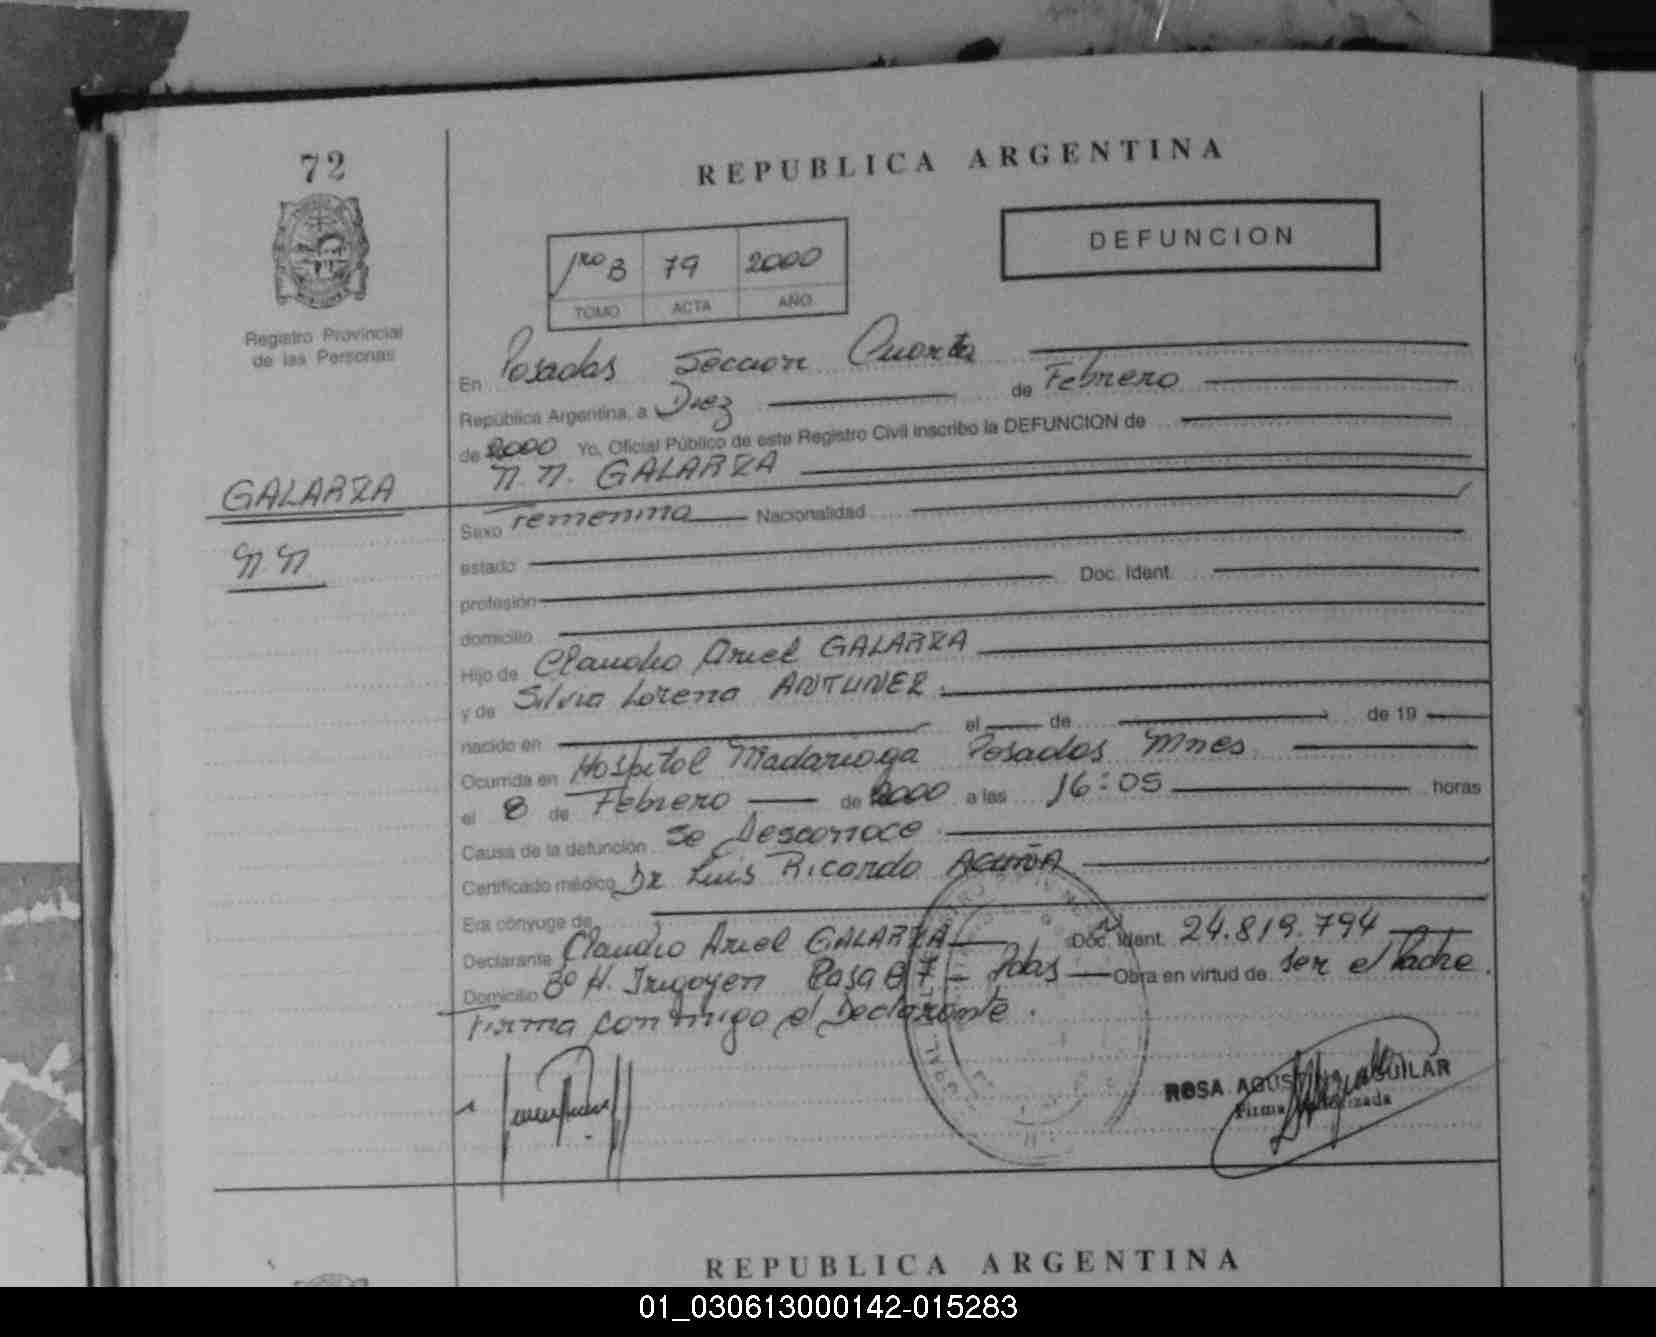 72
REPUBLICA ARGENTINA
DEFUNCION
1ro B 79 2000
TOMO ACTA AÑO
Registro Provincial
de las Personas
En Posadas Seccion Cuarta
República Argentina, a Diez de Febrero
de 2000 Yo, Oficial Público de este Registro Civil inscribo la DEFUNCION de
N.N. GALARZA
GALARZA
N.N
Sexo Femenino Nacionalidad
estado
profesión Doc. Ident.
domicilio
Hijo de Claudio Ariel GALARZA
y de Silvia Lorena ANTUNEZ.
nacido en el de de 19
Ocurrida en Hospital Madariaga Posadas Mnes
el 8 de Febrero de 2000 a las 16:05 horas
Causa de la defunción Se Desconoce.
Certificado médico Dr Luis Ricardo ACUÑA
Era cónyuge de
Declarante Claudio Ariel GALARZA Doc. Ident. 24.819.794
Domicilio Bº H. Irigoyen Casa 87 - Pdas Obra en virtud de ser el Padre.
Firma conmigo el Declarante.
ROSA AGUS AGUILAR
Firma
REPUBLICA ARGENTINA
01_030613000142-015283